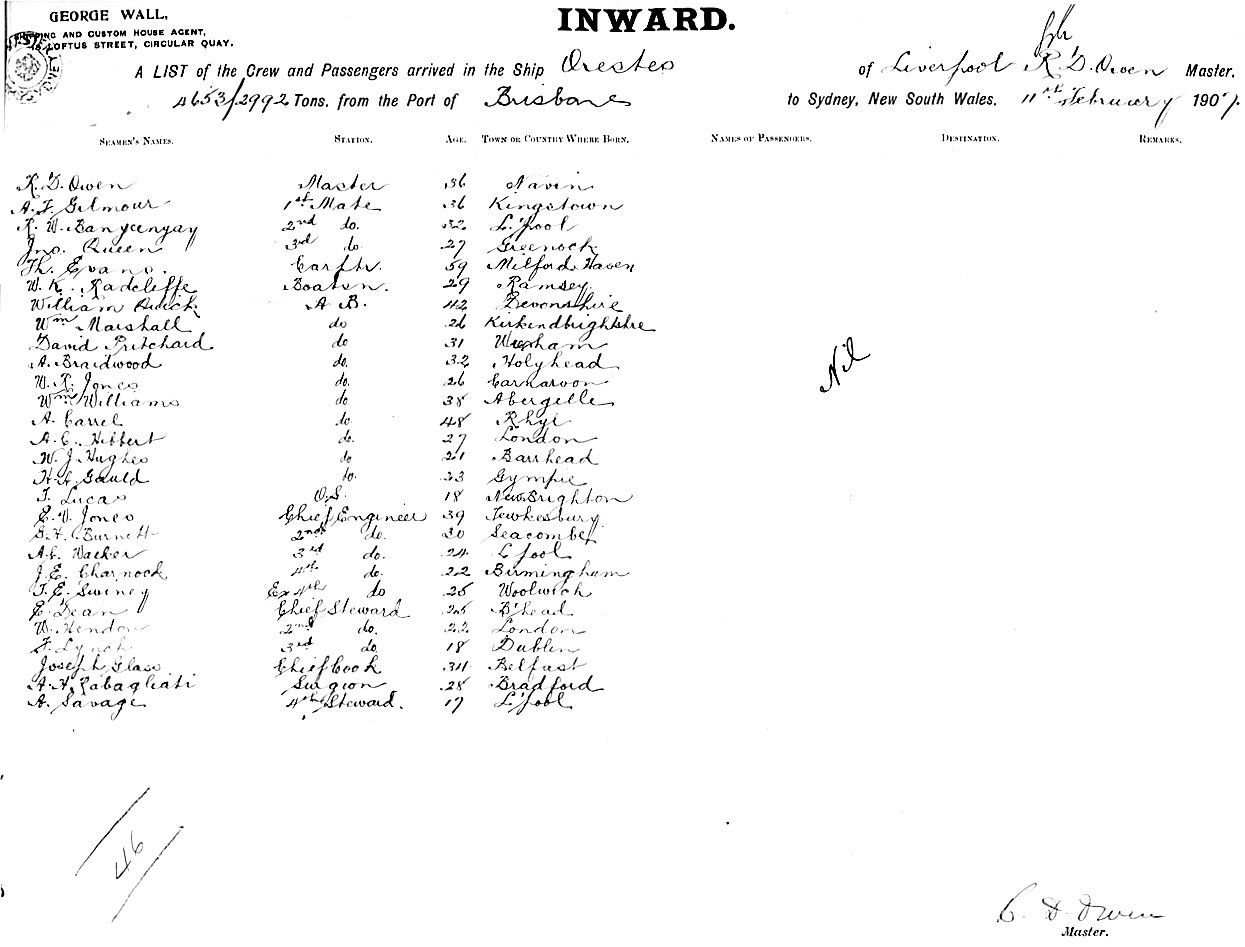 GEORGE WALL,
SHIPPING AND CUSTOM HOUSE AGENT,
LOFTUS STREET, CIRCULAR QUAY.
INWARD.
A LIST of the Crew and Passengers arrived in the Ship Orestes of Liverpool R. D. Owen Master.
4653/2992 Tons. from the Port of Brisbane to Sydney, New South Wales. 11th February 1907.
SEAMEN'S NAMES. STATION. AGE. TOWN OR COUNTRY WHERE BORN. NAMES OF PASSENGERS. DESTINATION. REMARKS.
R. D. Owen Master 36 Navin
A. F. Gilmour 1st Mate 36 Kingstown
R. W. 2nd do. 32 L'pool
Jno. Queen 3rd do. 27 Greenock
Th. Evans. Carptr. 59 Milford Haven
W. K. Radcliffe Boatsn. 29 Ramsey.
William Quick A B. 42 Devonshire
Wm Marshall do 26 Kirkindbrightshre
David Pritchard do 31 Wrexham
A. Braidwood do. 32 Holyhead
W. R. Jones do. 26 Carnarvon
Wm Williams do 38 Abergelle
A. Carrel do. 48 Rhyl
A. C. Hibbert do. 27 London
W. J. Hughes do 21 Barrhead
H. A. Gauld do. 23 Gympie
T. Lucas O.S. 18 New Brighton
E. V. Jones Chief Engineer 39 Tewkesbury
Burnett 2nd do. 30 Seacombe
A. L. Walker 3rd do. 24 L'pool
J. E. Charnock 4th do. 22 Birmingham
T. E. Swiney Ex 4th do 25 Woolwich
E. Dean Chief Steward 25 B'head
W. Hendon 2nd do. 22 London
F. Lynch 3rd do. 18 Dublin
Joseph Glass Chief Cook 34 Belfast
A. H. Rabagliati Surgion 28 Bradford
A. Savage 4th Steward. 17 L'pool
Nil
46
R. D. Owen
Master.